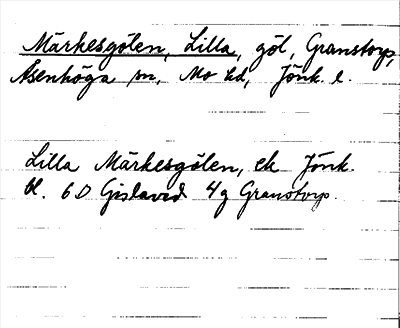 Märkesgölen, Lilla, göl, Granstorp,
Åsenhöga sn, Mo hd, Jönk. l.
Lilla Märkesgölen, ek Jönk.
bl. 6D Gislaved 4g Granstorp.